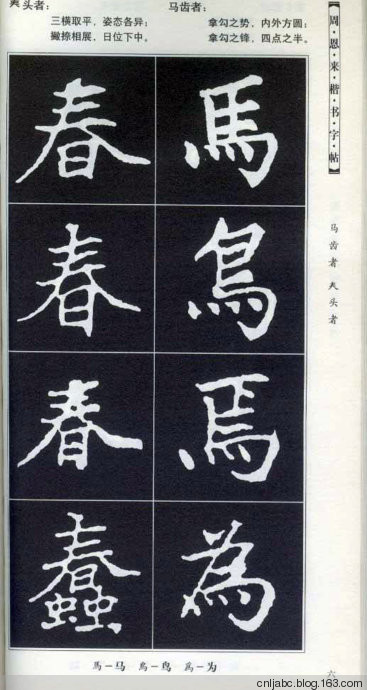 周·恩·来·楷·书·字·帖
马齿者 𡗗头者
马齿者：
拿勾之势，内外方圆；
拿勾之锋，四点之半。
𡗗头者：
三横取平，姿态各异；
撇捺相展，日位下中。
馬
鳥
焉
為
春
春
春
蠢
馬－马 鳥－鸟 為－为
六
cnljabc.blog.163.com